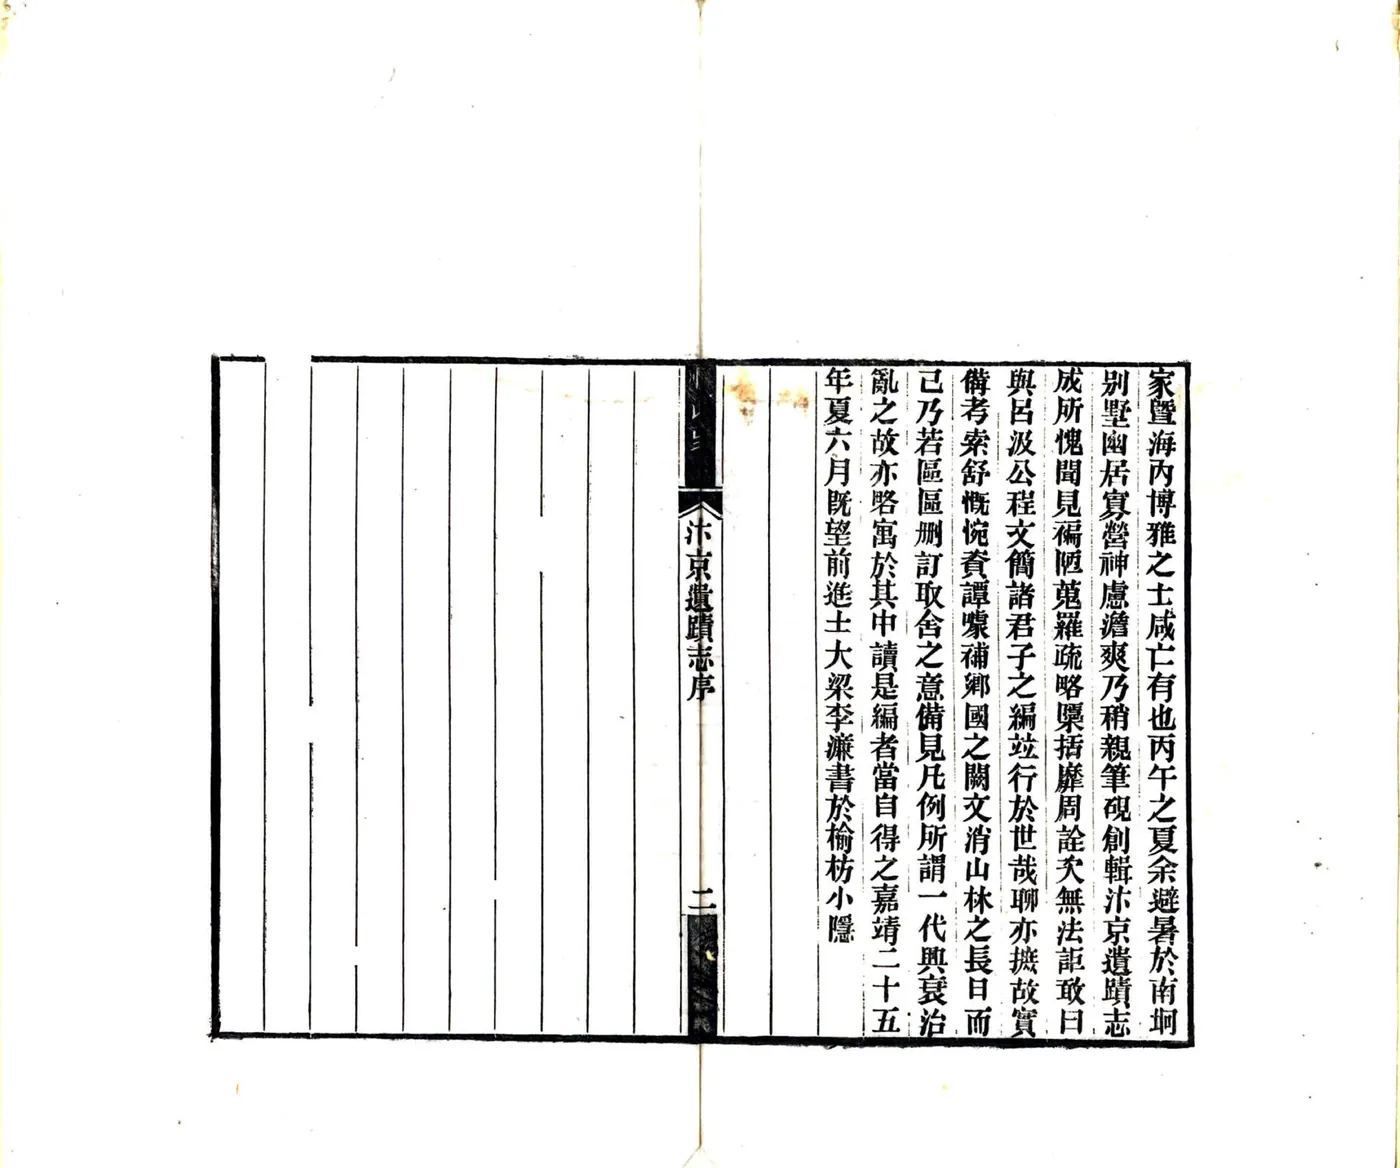 家曁海内博雅之士咸亡有也丙午之夏余避暑於南坰
别墅幽居寡營神慮澹爽乃稍親筆硯創輯汴京遺蹟志
成所愧聞見褊陋蒐羅疏略檃括靡周詮次無法詎敢曰
與呂汲公程文簡諸君子之編竝行於世哉聊亦摭故實
備考索舒慨惋資譚噱補鄉國之闕文消山林之長日而
已乃若區區刪訂取舍之意備見凡例所謂一代興衰治
亂之故亦略寓於其中讀是編者當自得之嘉靖二十五
年夏六月既望前進士大梁李濂書於榆枋小隱
汴京遺蹟志序
二